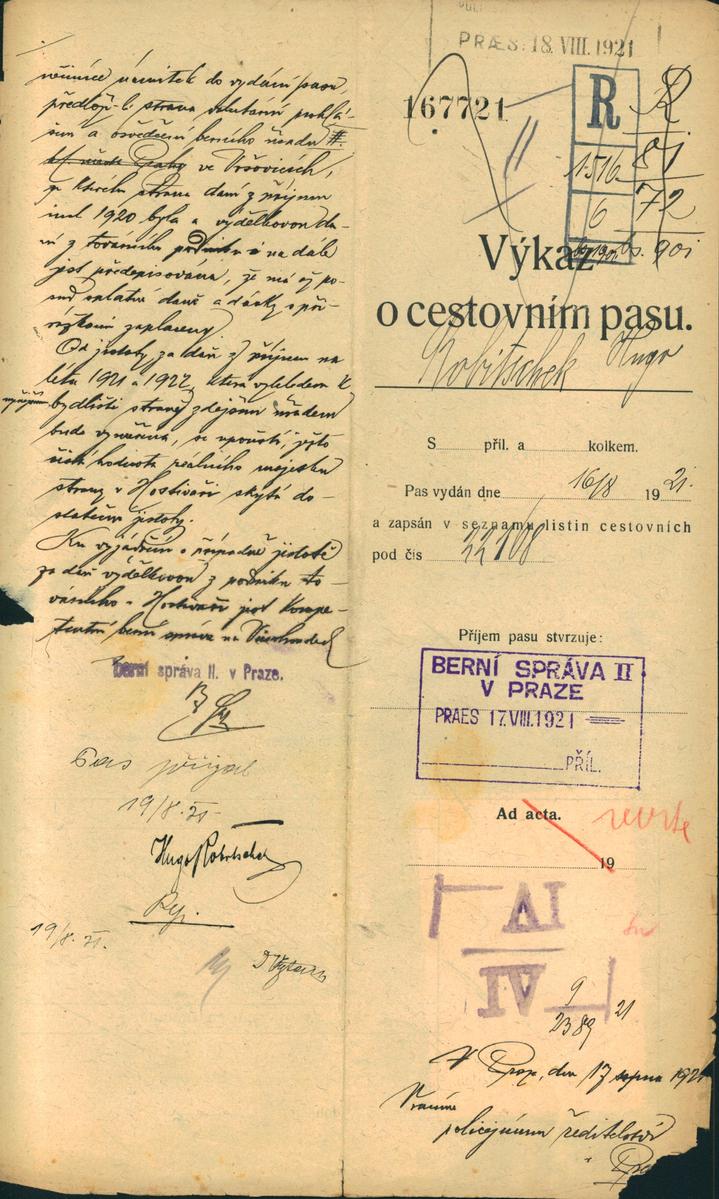 PRÆS. 18. VIII. 1921
167721
R
1516 81
6 72
Výkaz
o cestovním pasu.
Robitschek Hugo
S příl. a kolkem.
Pas vydán dne 16/8 1921.
a zapsán v seznamu listin cestovních
pod čís 22108
Příjem pasu stvrzuje:
BERNÍ SPRÁVA II
V PRAZE
PRAES 17.VIII.1921
PŘÍL.
Ad acta.
19
IV
VI
9
2389 21
V Praze, dne 17 srpna 1921
Vráceno
policejnímu ředitelství
námitek do vydání pasu,
předloží-li strana
a osvědčení berního úřadu II.
ve Vršovicích,
strana daní z příjmu
1920 byla a výdělkovou da-
ní z továrního podniku i na dále
jest předepisována, že má
splatné daně a dávky s při-
rážkami zaplaceny
Od jistoty za daň z příjmu na
léta 1921 a 1922, která vzhledem k
bydlišti strany zdejším úřadem
bude vyměřena, se upouští, ježto
hodnota reálního majetku
strany v Hostivaři skýtá do-
statečnou jistotu.
Ku vyjádření o případné jistotě
za daň výdělkovou z podniku to-
várního v Hostivaři jest kompe-
tentní berní správa na Vinohradech
Berní správa II. v Praze.
Pas přijal
19/8. 21.
Hugo Robitschek
19/8. 21.